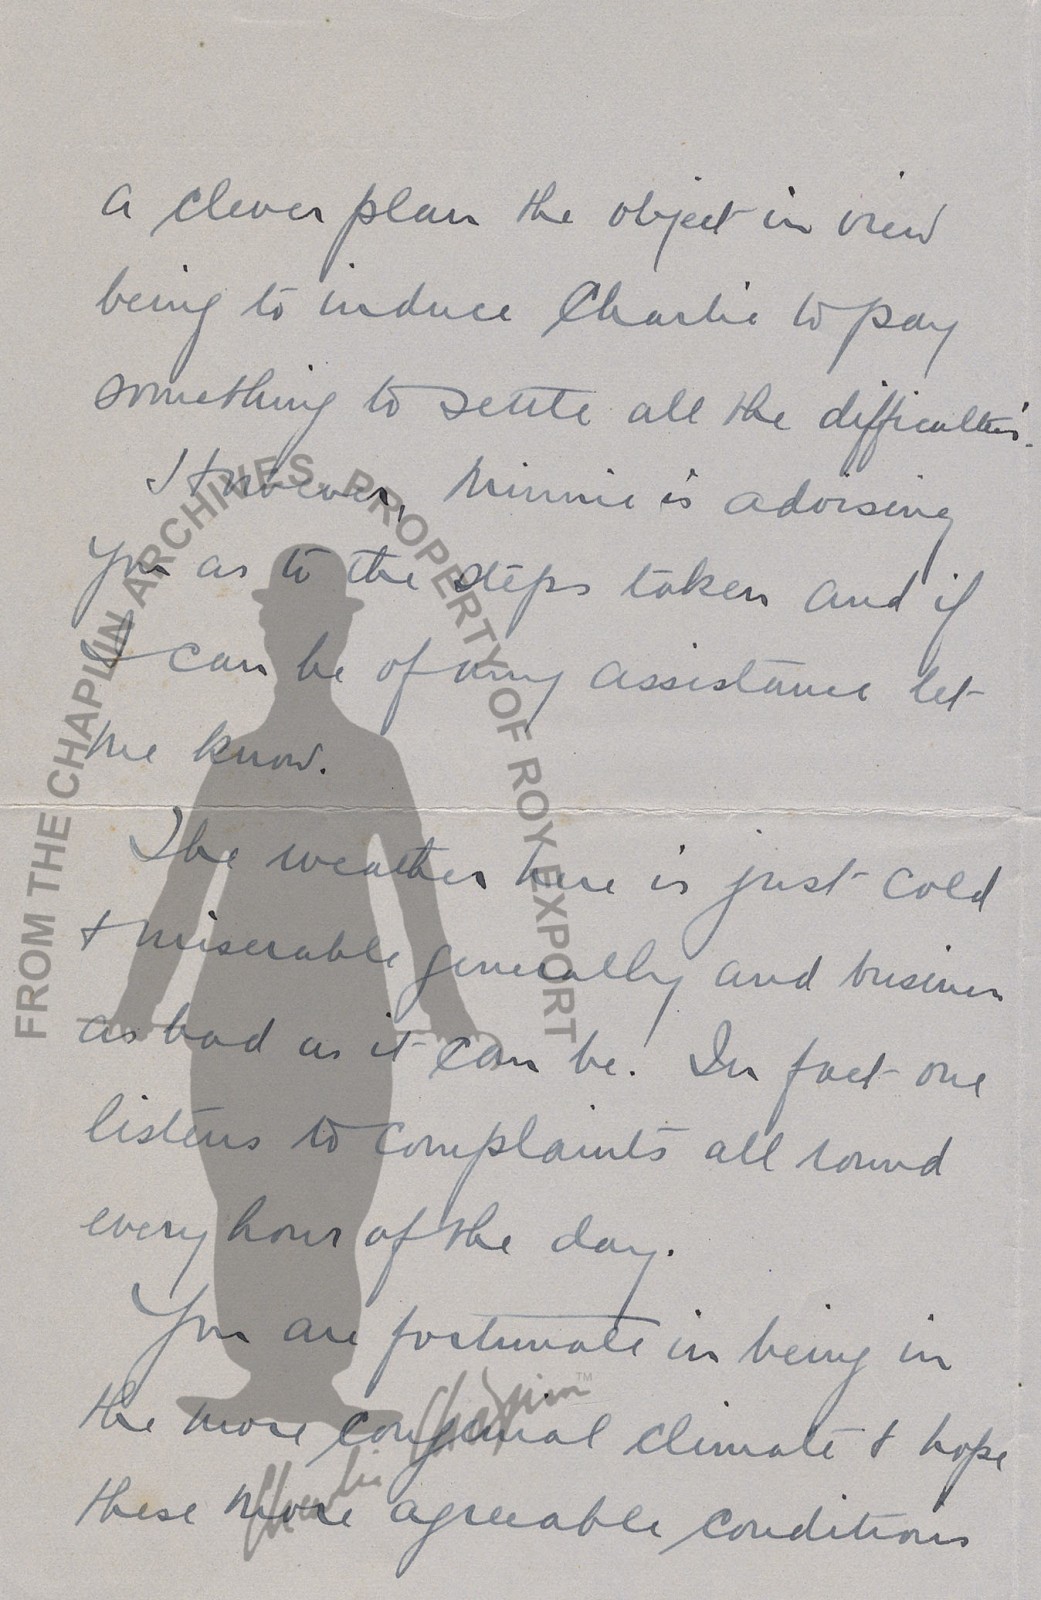 a clever plan the object in view
being to induce Charlie to pay
something to settle all the difficulties.
However, Minnie is advising
you as to the steps taken and if
I can be of any assistance let
me know.
The weather here is just cold
& miserable generally and business
as bad as it can be. In fact one
listens to complaints all round
every hour of the day.
You are fortunate in being in
the more congenial climate & hope
these more agreeable conditions
FROM THE CHAPLIN ARCHIVES. PROPERTY OF ROY EXPORT
Charlie Chaplin™